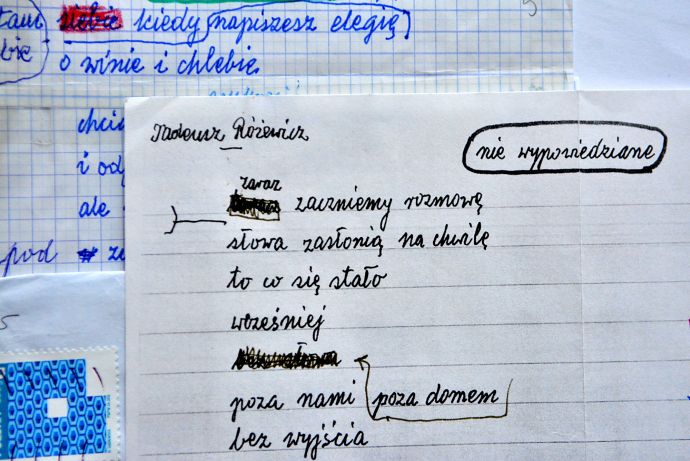 siebie kiedy napiszesz elegię
o winie i chlebie
i od
ale
pod
Tadeusz Różewicz
nie wypowiedziane
zaraz
zaczniemy rozmowę
słowa zasłonią na chwilę
to co się stało
wcześniej
poza nami poza domem
bez wyjścia